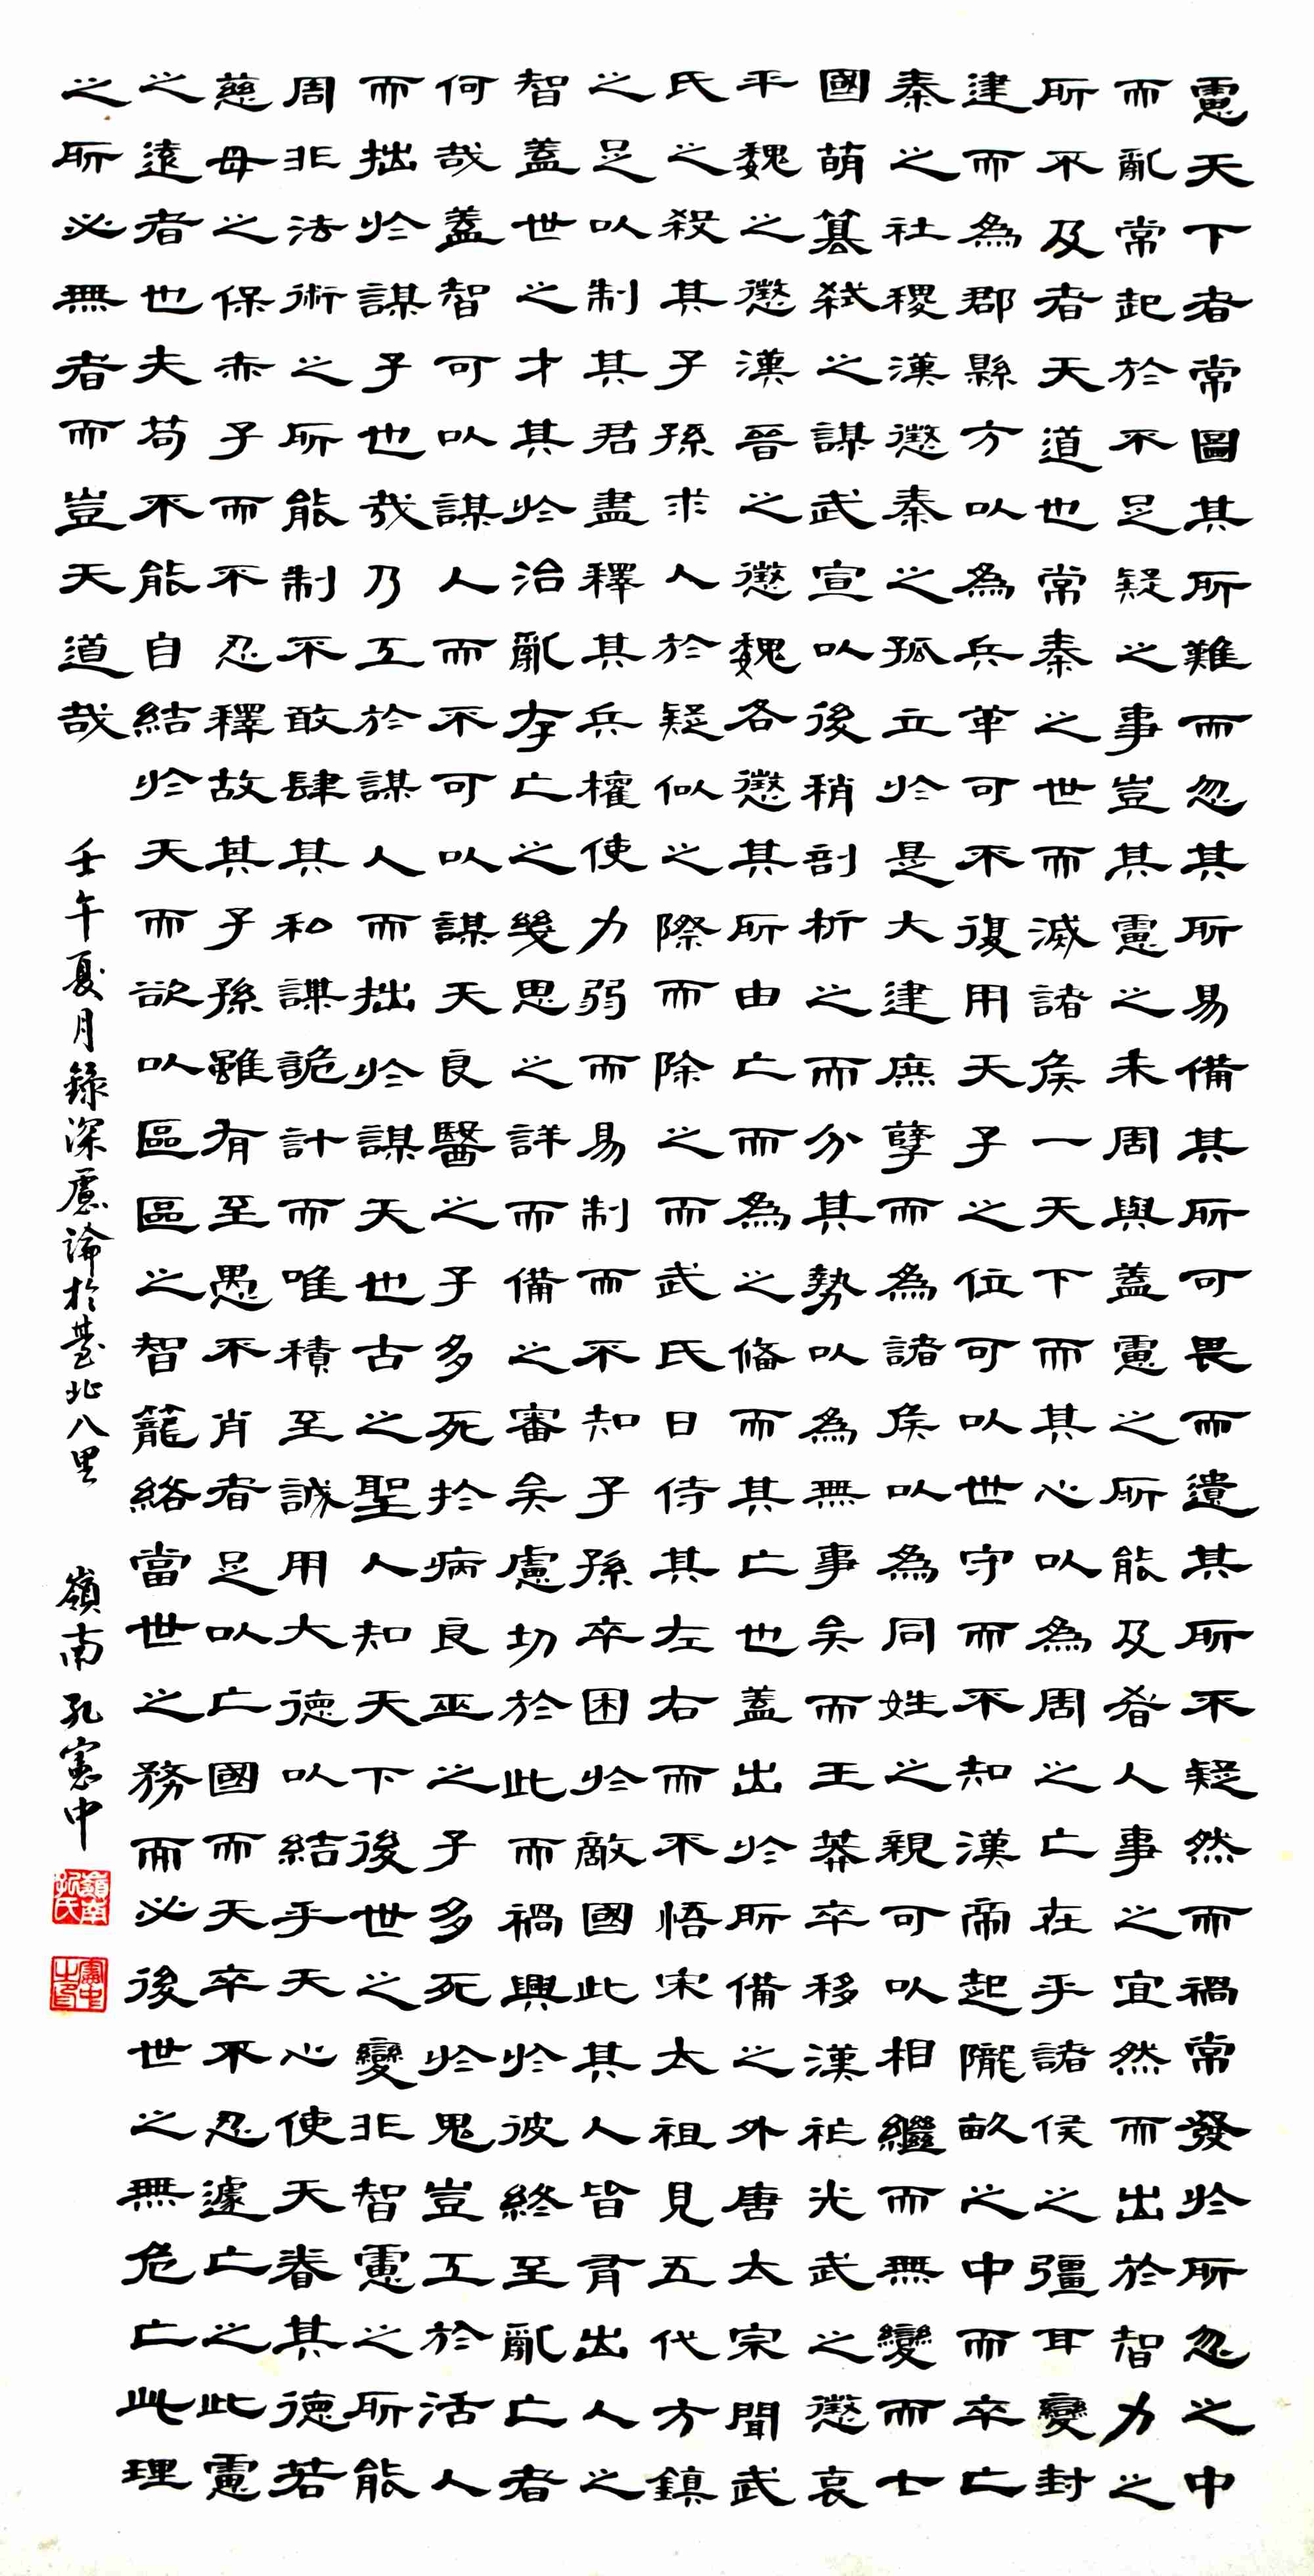 慮天下者常圖其所難而忽其所易備其所可畏而遺其所不疑然而禍常發於所忽之中
而亂常起於不足疑之事豈其慮之未周與蓋慮之所能及者人事之宜然而出於智力之
所不及者天道也常秦之世而滅諸侯一天下而其心以為周之亡在乎諸侯之彊耳變封
建而為郡縣方以為兵革可不復用天子之位可以世守而不知漢帝起隴畝之中而卒亡
秦之社稷漢懲秦之孤立於是大建庶孽而為諸侯以為同姓之親可以相繼而無變而七
國萌篡弒之謀武宣以後稍剖析之而分其勢以為無事矣而王莽卒移漢祚光武之懲哀
平魏之懲漢晉之懲魏各懲其所由亡而為之備而其亡也蓋出於所備之外唐太宗聞武
氏之殺其子孫求人於疑似之際而除之而武氏日侍其左右而不悟宋太祖見五代方鎮
之足以制其君盡釋其兵權使力弱而易制而不知子孫卒困於敵國此其人皆有出人之
智蓋世之才其於治亂存亡之幾思之詳而備之審矣慮切於此而禍興於彼終至亂亡者
何哉蓋智可以謀人而不可以謀天良醫之子多死於病良巫之子多死於鬼豈工於活人
而拙於謀子也哉乃工於謀人而拙於謀天也古之聖人知天下後世之變非智慮之所能
周非法術之所能制不敢肆其私謀詭計而唯積至誠用大德以結乎天心使天眷其德若
慈母之保赤子而不忍釋故其子孫雖有至愚不肖者足以亡國而天卒不忍遽亡之此慮
之遠者也夫苟不能自結於天而欲以區區之智籠絡當世之務而必後世之無危亡此理
之所必無者而豈天道哉
壬午夏月錄深慮論於臺北八里 嶺南孔憲中
嶺南孔氏
憲中之印